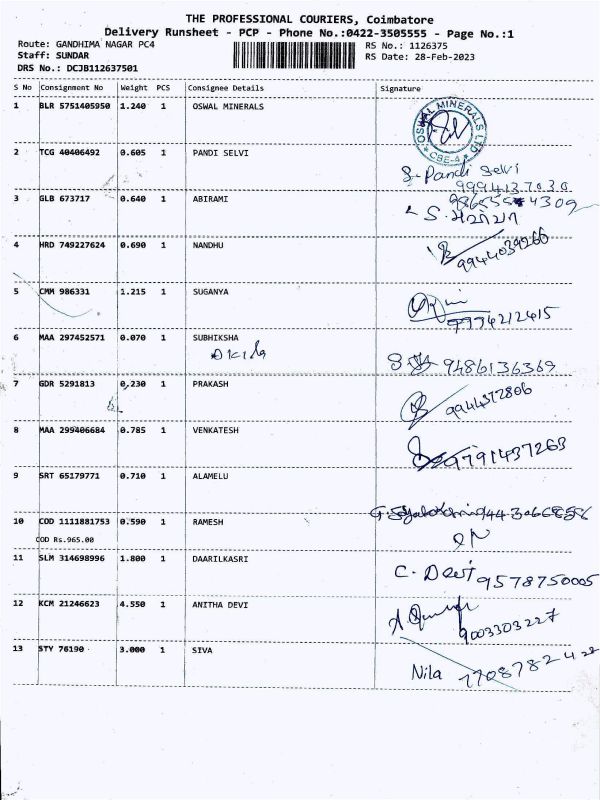 THE PROFESSIONAL COURIERS, Coimbatore
Delivery Runsheet - PCP - Phone No.:0422-3505555 - Page No.:1
Route: GANDHIMA NAGAR PC4 RS No.: 1126375
Staff: SUNDAR RS Date: 28-Feb-2023
DRS No.: DCJB112637501
S No Consignment No Weight PCS Consignee Details Signature
1 BLR 5751405950 1.240 1 OSWAL MINERALS
OSWAL MINERALS LTD
CBE-4
2 TCG 40406492 0.605 1 PANDI SELVI
S. Pandi Selvi
9994137030
3 GLB 673717 0.640 1 ABIRAMI
4309
4 HRD 749227624 0.690 1 NANDHU
9944039266
5 CMM 986331 1.215 1 SUGANYA
9994212415
6 MAA 297452571 0.070 1 SUBHIKSHA
9486136369
7 GDR 5291813 0.230 1 PRAKASH
9944372806
8 MAA 299406684 0.785 1 VENKATESH
9791437263
9 SRT 65179771 0.710 1 ALAMELU
10 COD 1111881753 0.590 1 RAMESH
COD Rs.965.00
11 SLM 314698996 1.800 1 DAARILKASRI
C. Devi 9578750005
12 KCM 21246623 4.550 1 ANITHA DEVI
9003303227
13 STY 76190 3.000 1 SIVA
Nila 7708782428